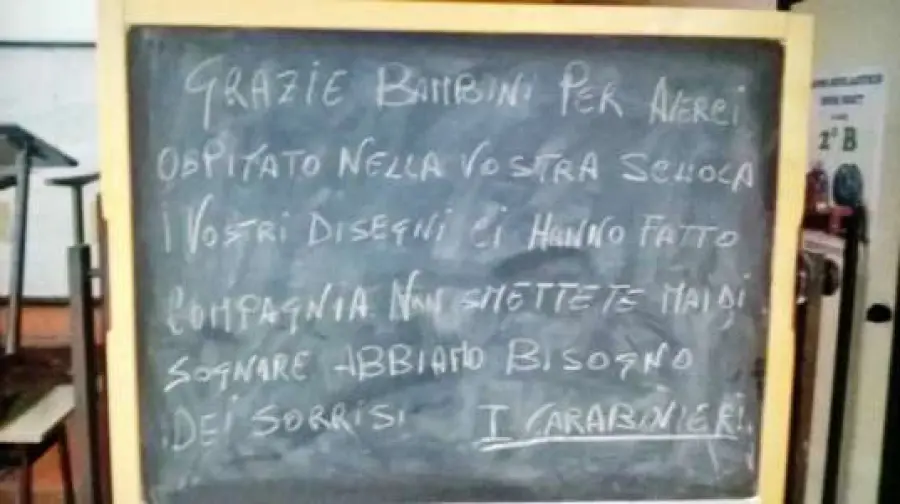 GRAZIE BAMBINI PER AVERCI
OSPITATO NELLA VOSTRA SCUOLA
I VOSTRI DISEGNI CI HANNO FATTO
COMPAGNIA NON SMETTETE MAI DI
SOGNARE ABBIAMO BISOGNO
DEI SORRISI I CARABINIERI
2ª B